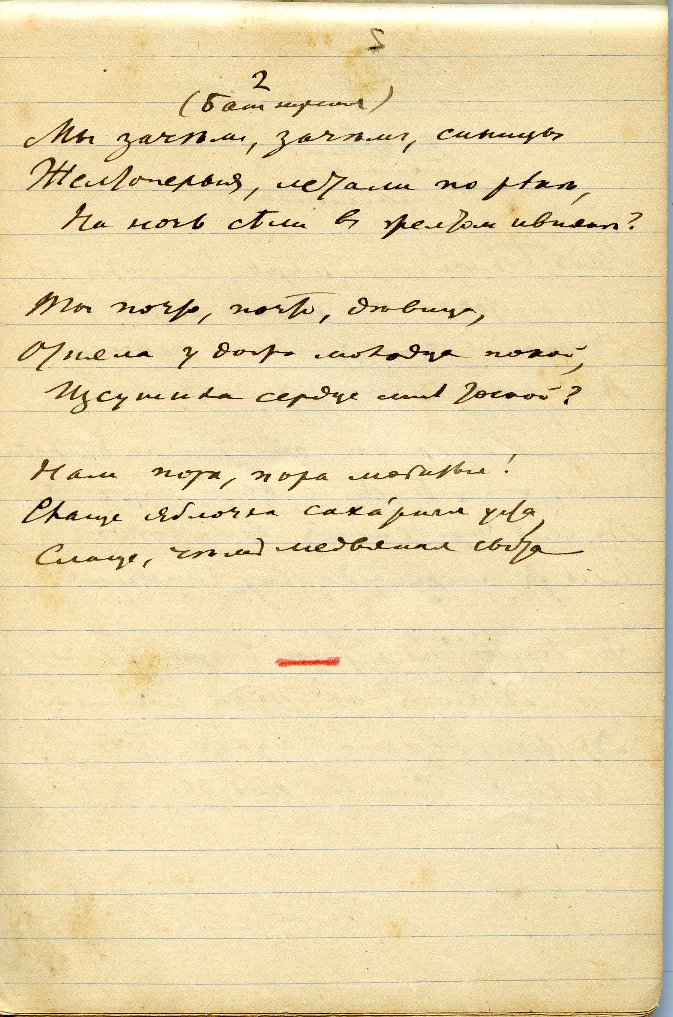 5
2
(Башкирия)
Мы зачѣмъ, зачѣмъ, синицы
Желтоперыя, летали по рѣкѣ,
На ночь сѣли въ желтом ивнякѣ?
Ты почто, почто, дѣвица,
Отняла у добра молодца покой,
Изсушила сердце мнѣ тоской?
Нам пора, пора любиться!
Слаще яблочка саха́рныя уста,
Слаще, чѣмъ медвяная сыта